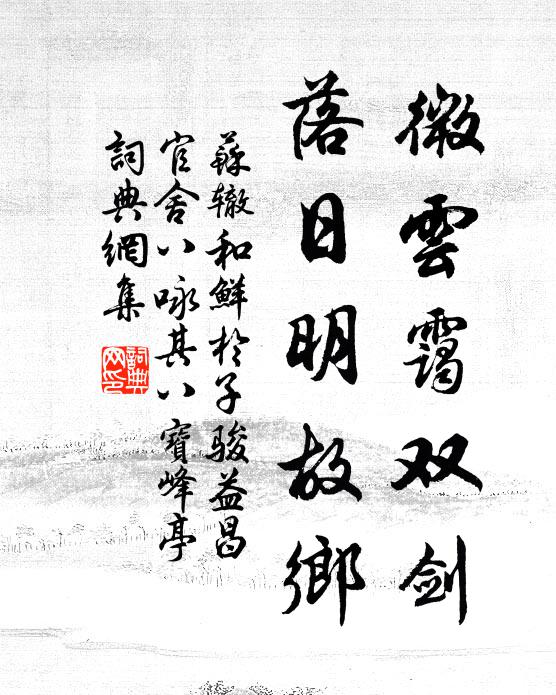 微雲靄双劍
落日明故鄉
蘇辙和鮮於子駿益昌
官舍八咏其八寶峰亭
詞典網集
詞典
网印